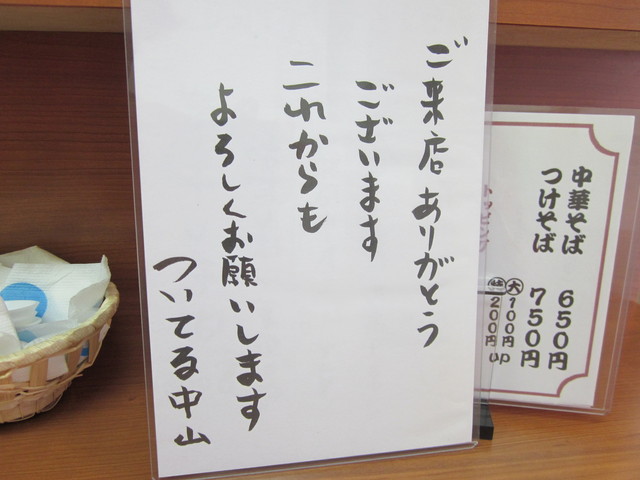 ご来店ありがとう
ございます
これからも
よろしくお願いします
ついてる中山
中華そば 650円
つけそば 750円
トッピング
大 100円
200円 up